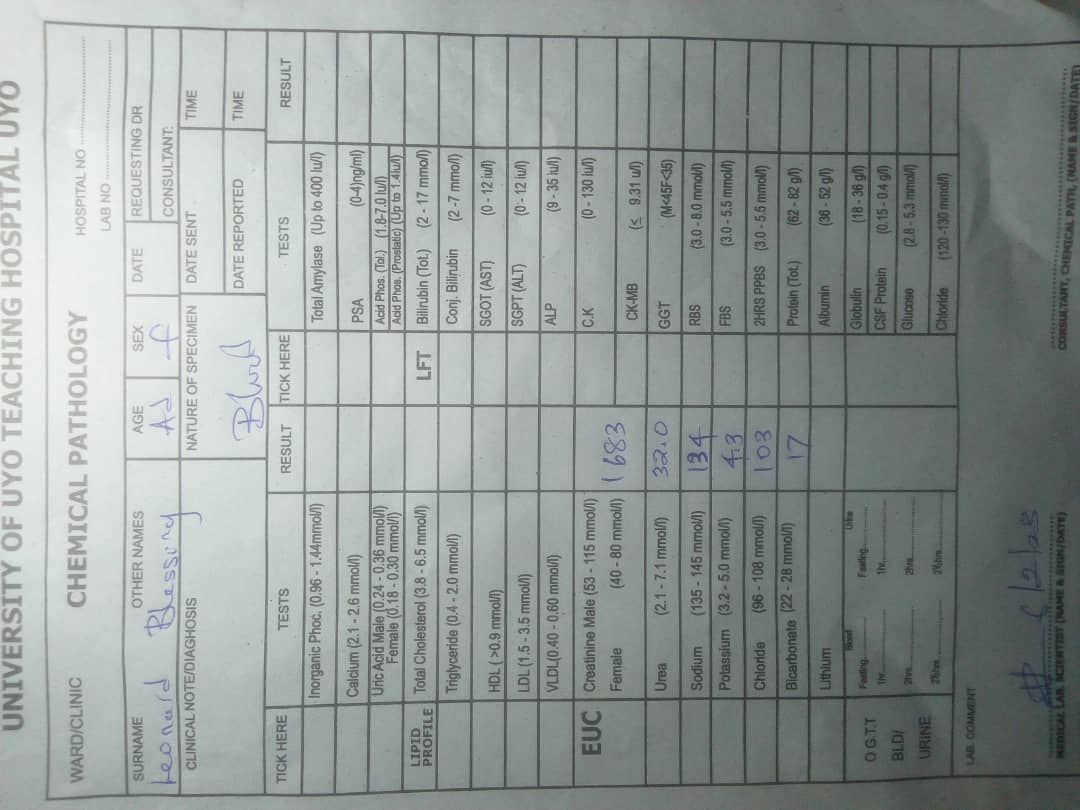 UNIVERSITY OF UYO TEACHING HOSPITAL UYO
WARD/CLINIC CHEMICAL PATHOLOGY HOSPITAL NO
LAB NO
SURNAME OTHER NAMES AGE SEX DATE REQUESTING DR
Leonard Blessing Ad f CONSULTANT:
CLINICAL NOTE/DIAGHOSIS NATURE OF SPECIMEN DATE SENT TIME
Blood DATE REPORTED TIME
TICK HERE TESTS RESULT TICK HERE TESTS RESULT
Inorganic Phoc. (0.96 - 1.44mmol/l) Total Amylase (Up to 400 lu/l)
Calcium (2.1 - 2.6 mmol/l) PSA (0-4)ng/ml)
Uric Acid Male (0.24 - 0.36 mmol/l) Acid Phos. (Tol.) (1.8-7.0 lu/l)
Female (0.18 - 0.30 mmol/l) Acid Phos. (Prostatic) (Up to 1.4lu/l)
LIPID PROFILE Total Cholesterol (3.8 - 6.5 mmol/l) LFT Bilirubin (Tot.) (2 - 17 mmol/l)
Triglyceride (0.4 - 2.0 mmol/l) Conj. Bilirubin (2 -7 mmo/l)
HDL ( >0.9 mmol/l) SGOT (AST) (0 - 12 iu/l)
LDL (1.5 - 3.5 mmol/l) SGPT (ALT) (0 - 12 iu/l)
VLDL(0.40 - 0.60 mmol/l) ALP (9 - 35 iu/l)
EUC Creatinine Male (53 - 115 mmol/l) C.K (0 - 130 iu/l)
Female (40 - 80 mmol/l) 1683 CK-MB (≤ 9.31 u/l)
Urea (2.1 - 7.1 mmol/l) 32.0 GGT (M<45F<35)
Sodium (135 - 145 mmol/l) 134 RBS (3.0 - 8.0 mmol/l)
Potassium (3.2 - 5.0 mmol/l) 4.3 FBS (3.0 - 5.5 mmol/l)
Chloride (96 - 108 mmol/l) 103 2HRS PPBS (3.0 - 5.5 mmol/l)
Bicarbonate (22 - 28 mmol/l) 17 Protein (Tot.) (62 - 82 g/l)
Lithium Albumin (36 - 52 g/l)
Blood Urine Globulin (18 - 36 g/l)
O G.T.T Fasting Fasting CSF Protein (0.15 - 0.4 g/l)
BLD/ 1hr. 1hr. Glucose (2.8 - 5.3 mmol/l)
URINE 2hrs. 2hrs. Chloride (120 -130 mmol/l)
2½hrs. 2½hrs.
LAB. COMMENT
MEDICAL LAB. SCIENTIST (NAME & SIGN/DATE) CONSULTANT, CHEMICAL PATH, (NAME & SIGN/DATE)